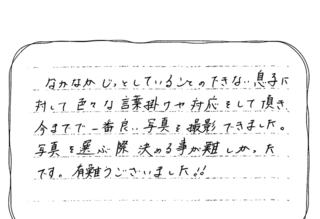 なかなかじっとしていることのできない息子に
対して色々な言葉掛けや対応をして頂き
今までで一番良い写真を撮影できました。
写真を選ぶ際決める事が難しかった
です。有難うございました!!